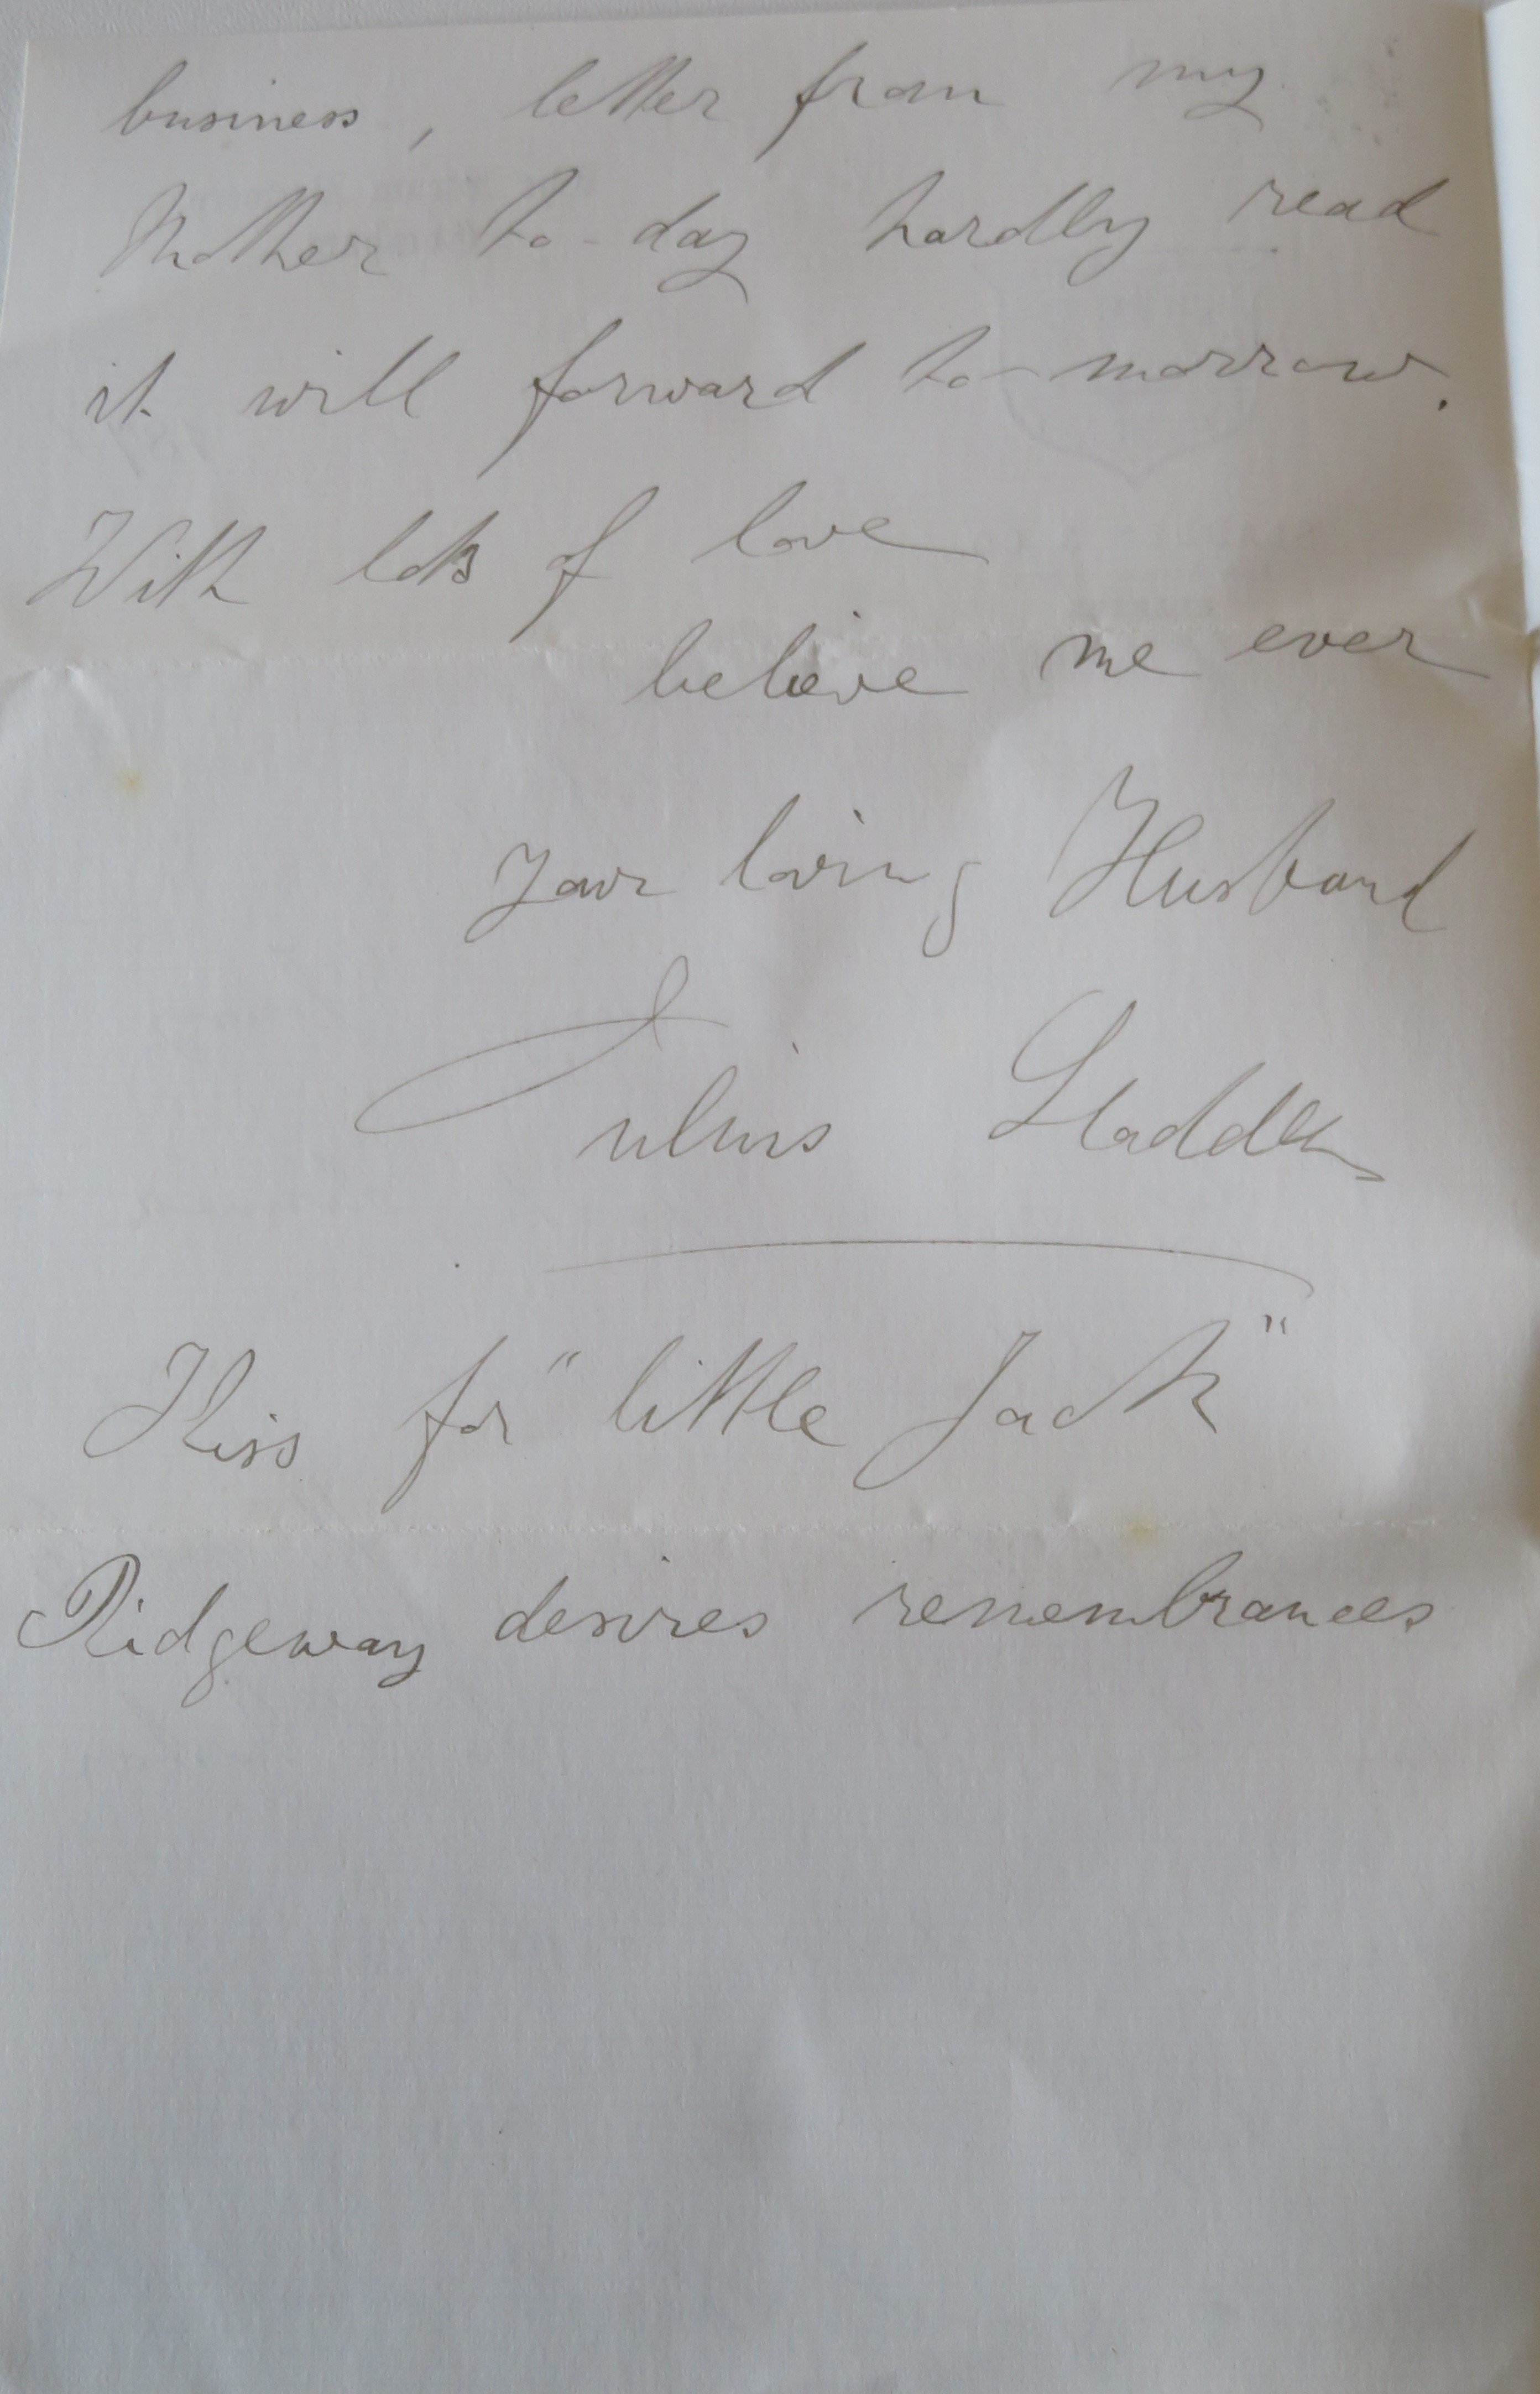 business, letter from my
Mother to-day hardly read
it will forward to-morrow.
With lots of love
believe me ever
Your loving Husband
Julius
Kiss for "little Jack"
Ridgeway desires remembrances